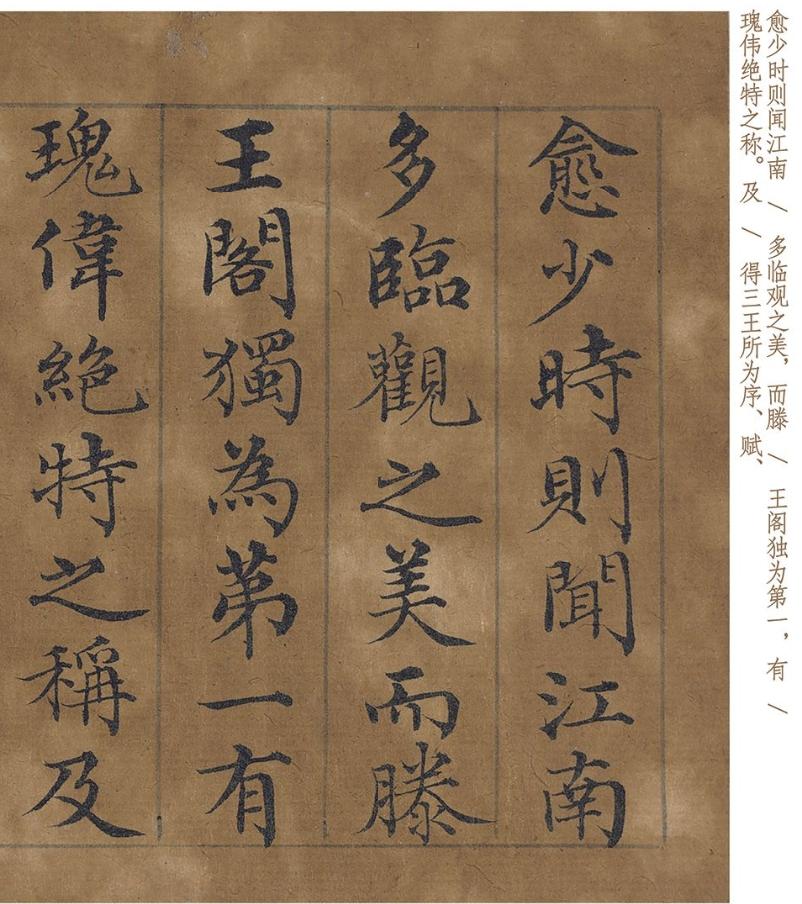 愈少时则闻江南 \ 多临观之美，而滕 \ 王阁独为第一，有 \
瑰伟绝特之称。及 \ 得三王所为序、赋、
愈少時則聞江南
多臨觀之美而滕
王閣獨為第一有
瑰偉絕特之稱及